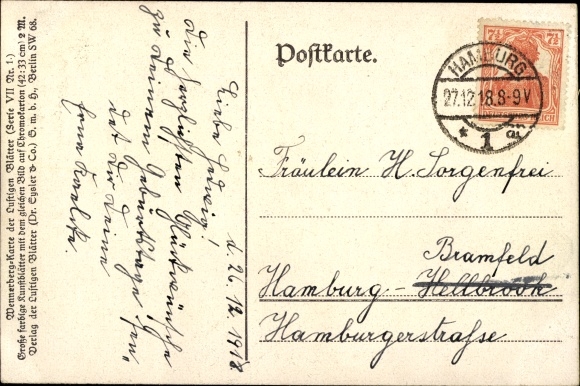 Wennerberg-Karte der Lustigen Blätter (Serie VII Nr. 1.)
Große farbige Kunstblätter mit dem gleichen Bild auf Chromokarton (42:33 cm) 2 M.
Verlag der Lustigen Blätter (Dr. Eysler & Co.) G. m. b. H., Berlin SW 68.
d. 26.12.1918
Liebe Hedwig!
Die herzlichsten Glückwünsche
zu Deinem Geburtstage sen-
det Dir Deine
Postkarte.
7½ 7½
HAMBURG
27.12.18.8-9V
* 1
Fräulein H. Sorgenfrei
Bramfeld
Hamburg - Hellbrook
Hamburgerstraße